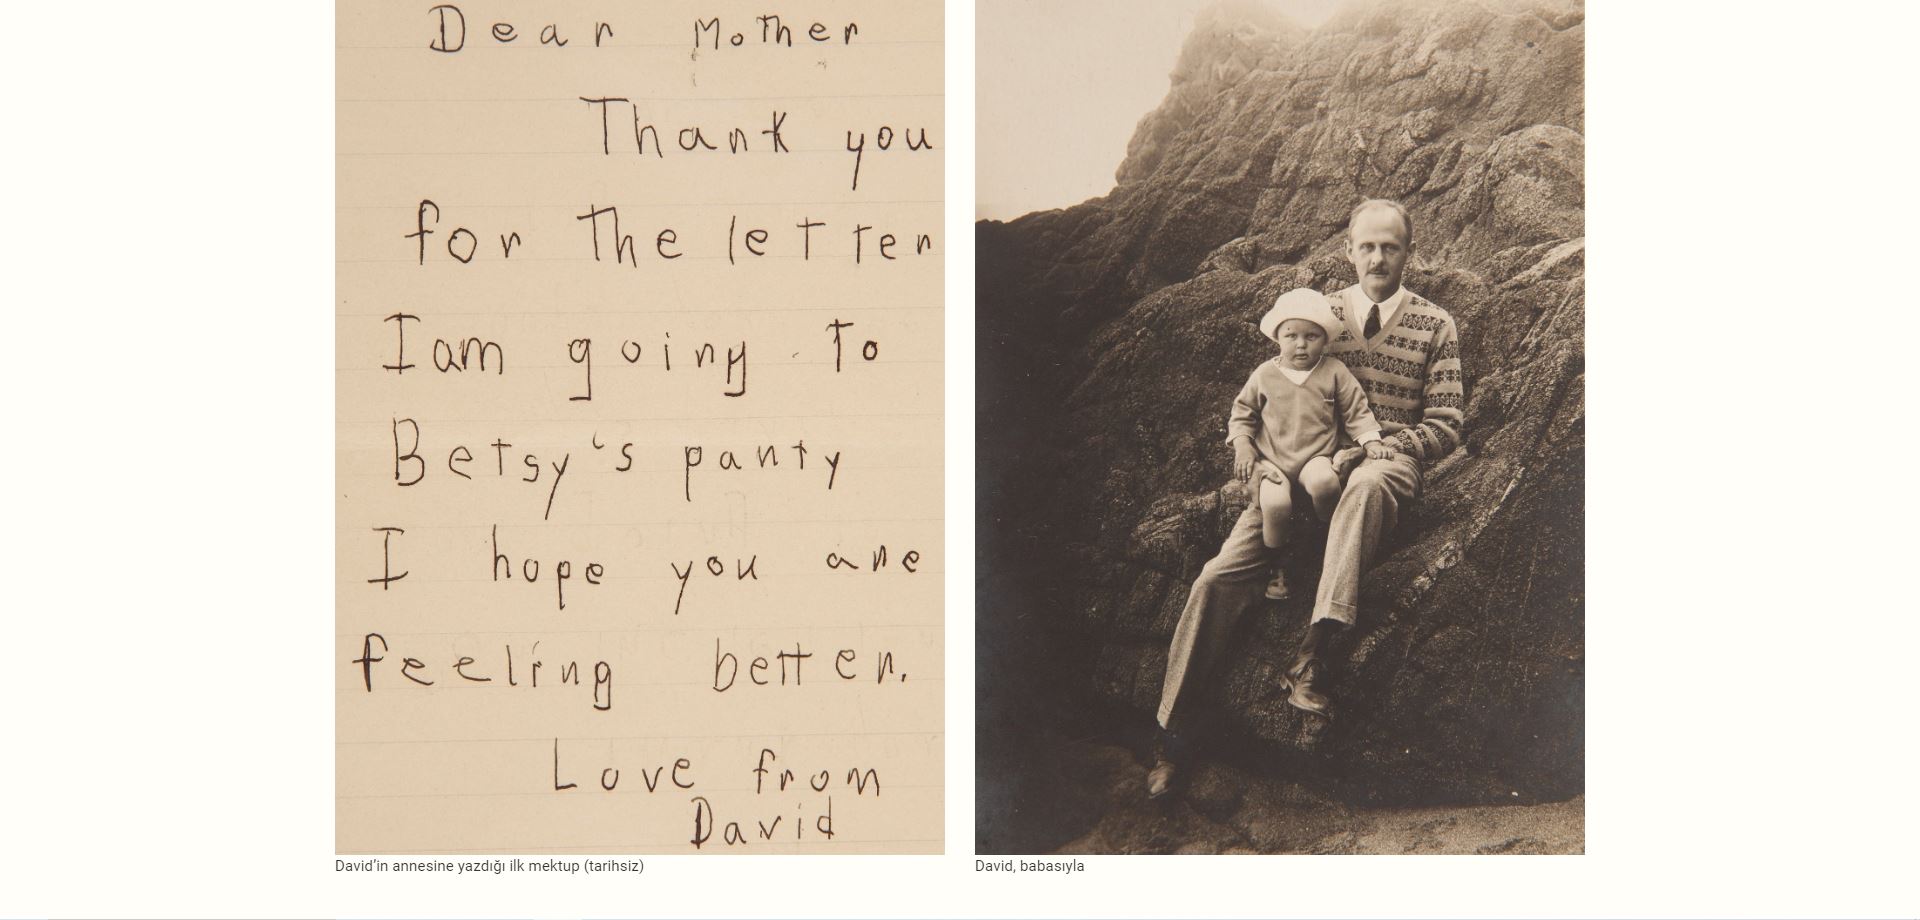 Dear Mother
Thank you
for the letter
I am going to
Betsy's party
I hope you are
feeling better.
Love from
David
David’in annesine yazdığı ilk mektup (tarihsiz)
David, babasıyla